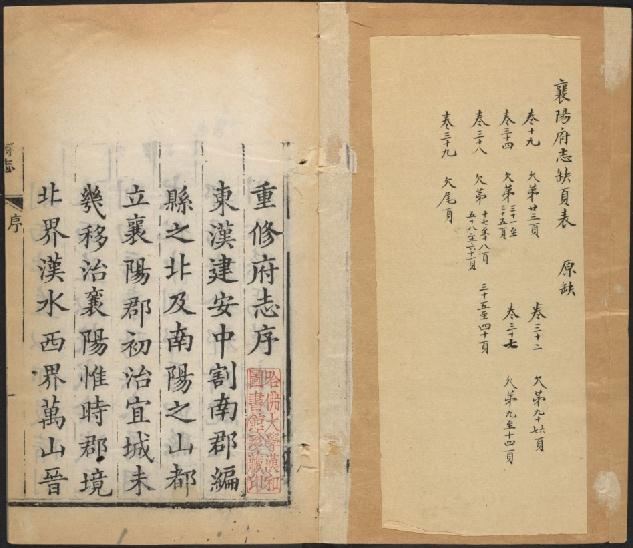 襄陽府志缺頁表 原缺
卷十九 欠第廿三頁 卷三十二 欠第九十六頁
卷三十四 欠第三十一至三十五頁 卷三十七 欠第九至十四頁
卷三十八 欠第十七至十八頁 五十八至六十一頁 三十五至四十頁
卷三十九 欠尾頁
重修府志序
哈佛大學漢和
圖書館珍藏印
東漢建安中割南郡編
縣之北及南陽之山都
立襄陽郡初治宜城未
幾移治襄陽惟時郡境
北界漢水西界萬山晉
府志
序